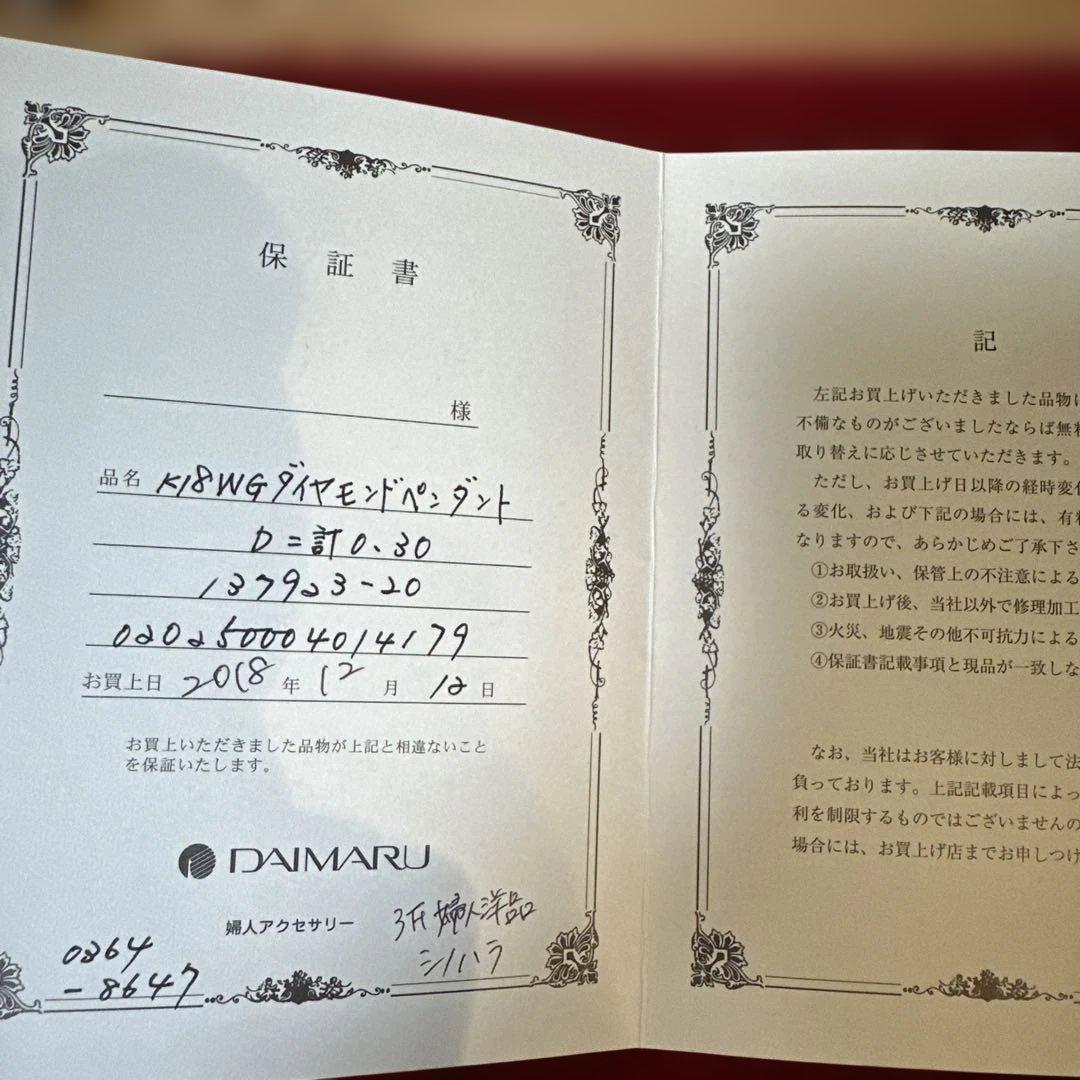 保証書
様
品名 K18WGダイヤモンドペンダント
D=計0.30
137923-20
020250004014179
お買上日 2018年12月12日
お買上いただきました品物が上記と相違ないこと
を保証いたします。
DAIMARU
婦人アクセサリー 3F婦人洋品
シノハラ
0264
-8647
記
左記お買上げいただきました品物に
不備なものがございましたならば無料
取り替えに応じさせていただきます。
ただし、お買上げ日以降の経時変化
る変化、および下記の場合には、有料
なりますので、あらかじめご了承下さ
①お取扱い、保管上の不注意による
②お買上げ後、当社以外で修理加工
③火災、地震その他不可抗力による
④保証書記載事項と現品が一致しな
なお、当社はお客様に対しまして法
負っております。上記記載項目によっ
利を制限するものではございませんの
場合には、お買上げ店までお申しつけ